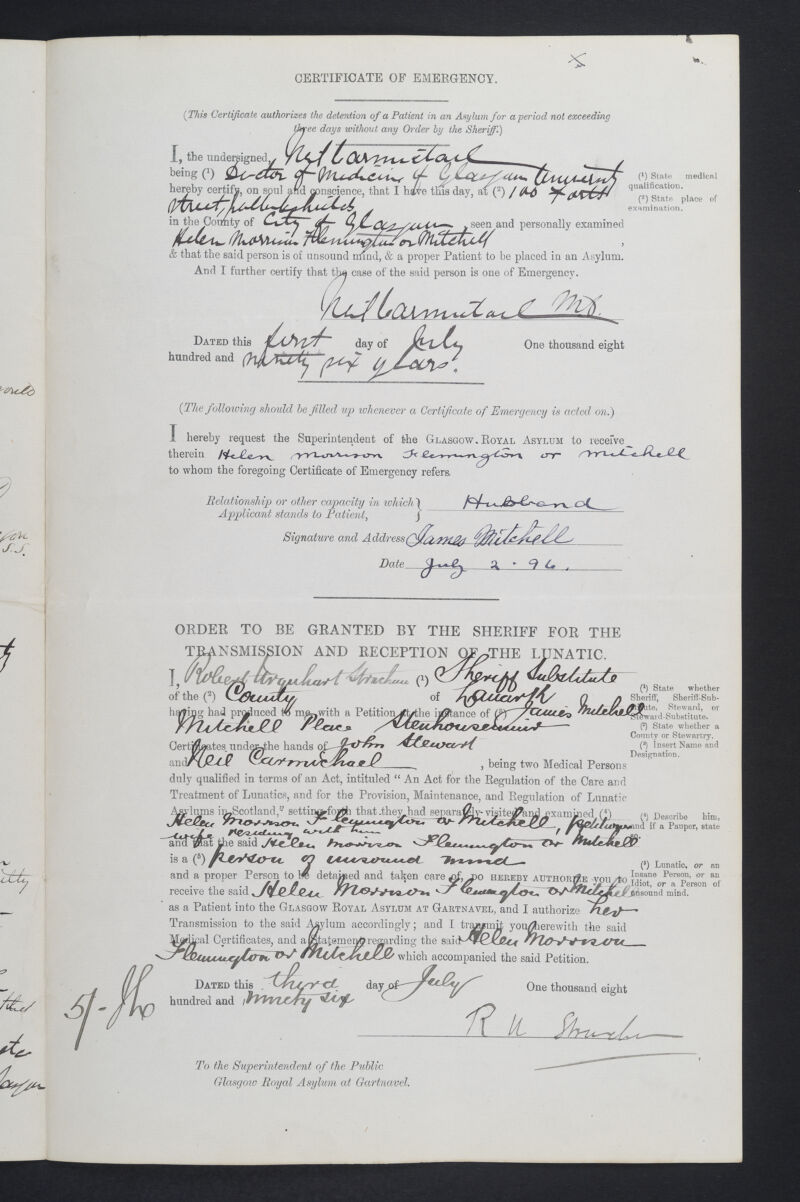 CERTIFICATE OF EMERGENCY.
(This Certificate authorizes the detention of a Patient in an Asylum for a period not exceeding
three days without any Order by the Sheriff.)
I, the undersigned, Neil Carmichael
being (¹) Doctor of Medicine of Glasgow University
(¹) State medical qualification.
hereby certify, on soul and conscience, that I have this day, at (²) 100 Forth
(²) State place of examination.
Street, Pollokshields
in the County of City of Glasgow, seen and personally examined
Helen Morrison Flemington or Mitchell,
& that the said person is of unsound mind, & a proper Patient to be placed in an Asylum.
And I further certify that the case of the said person is one of Emergency.
Neil Carmichael M.D.
DATED this first day of July One thousand eight
hundred and ninety six years.
(The following should be filled up whenever a Certificate of Emergency is acted on.)
I hereby request the Superintendent of the GLASGOW ROYAL ASYLUM to receive
therein Helen Morrison Flemington or Mitchell
to whom the foregoing Certificate of Emergency refers.
Relationship or other capacity in which } Husband
Applicant stands to Patient, }
Signature and Address James Mitchell
Date July 2 . 96.
ORDER TO BE GRANTED BY THE SHERIFF FOR THE
TRANSMISSION AND RECEPTION OF THE LUNATIC.
I, Robert Urquhart Strachan (¹) Sheriff Substitute
(¹) State whether Sheriff, Sheriff-Substitute, Steward, or Steward-Substitute.
of the (²) County of Lanark
(²) State whether a County or Stewartry.
having had produced to me, with a Petition at the instance of (³) James Mitchell
(³) Insert Name and Designation.
Mitchell Place Stenhousemuir
Certificates under the hands of John Stewart
and Neil Carmichael, being two Medical Persons
duly qualified in terms of an Act, intituled "An Act for the Regulation of the Care and
Treatment of Lunatics, and for the Provision, Maintenance, and Regulation of Lunatic
Asylums in Scotland," setting forth that they had separately visited and examined (⁴)
(⁴) Describe him, and if a Pauper, state so.
Helen Morrison Flemington or Mitchell, petitioner's
wife residing with him
and that the said Helen Morrison Flemington or Mitchell
is a (⁵) person of unsound mind
(⁵) Lunatic, or an Insane Person, or an Idiot, or a Person of unsound mind.
and a proper Person to be detained and taken care of, DO HEREBY AUTHORIZE you to
receive the said Helen Morrison Flemington or Mitchell
as a Patient into the GLASGOW ROYAL ASYLUM AT GARTNAVEL, and I authorize her
Transmission to the said Asylum accordingly; and I transmit you herewith the said
Medical Certificates, and a Statement regarding the said Helen Morrison
Flemington or Mitchell which accompanied the said Petition.
DATED this third day of July One thousand eight
hundred and ninety six
5/-
R U Strachan
To the Superintendent of the Public
Glasgow Royal Asylum at Gartnavel.